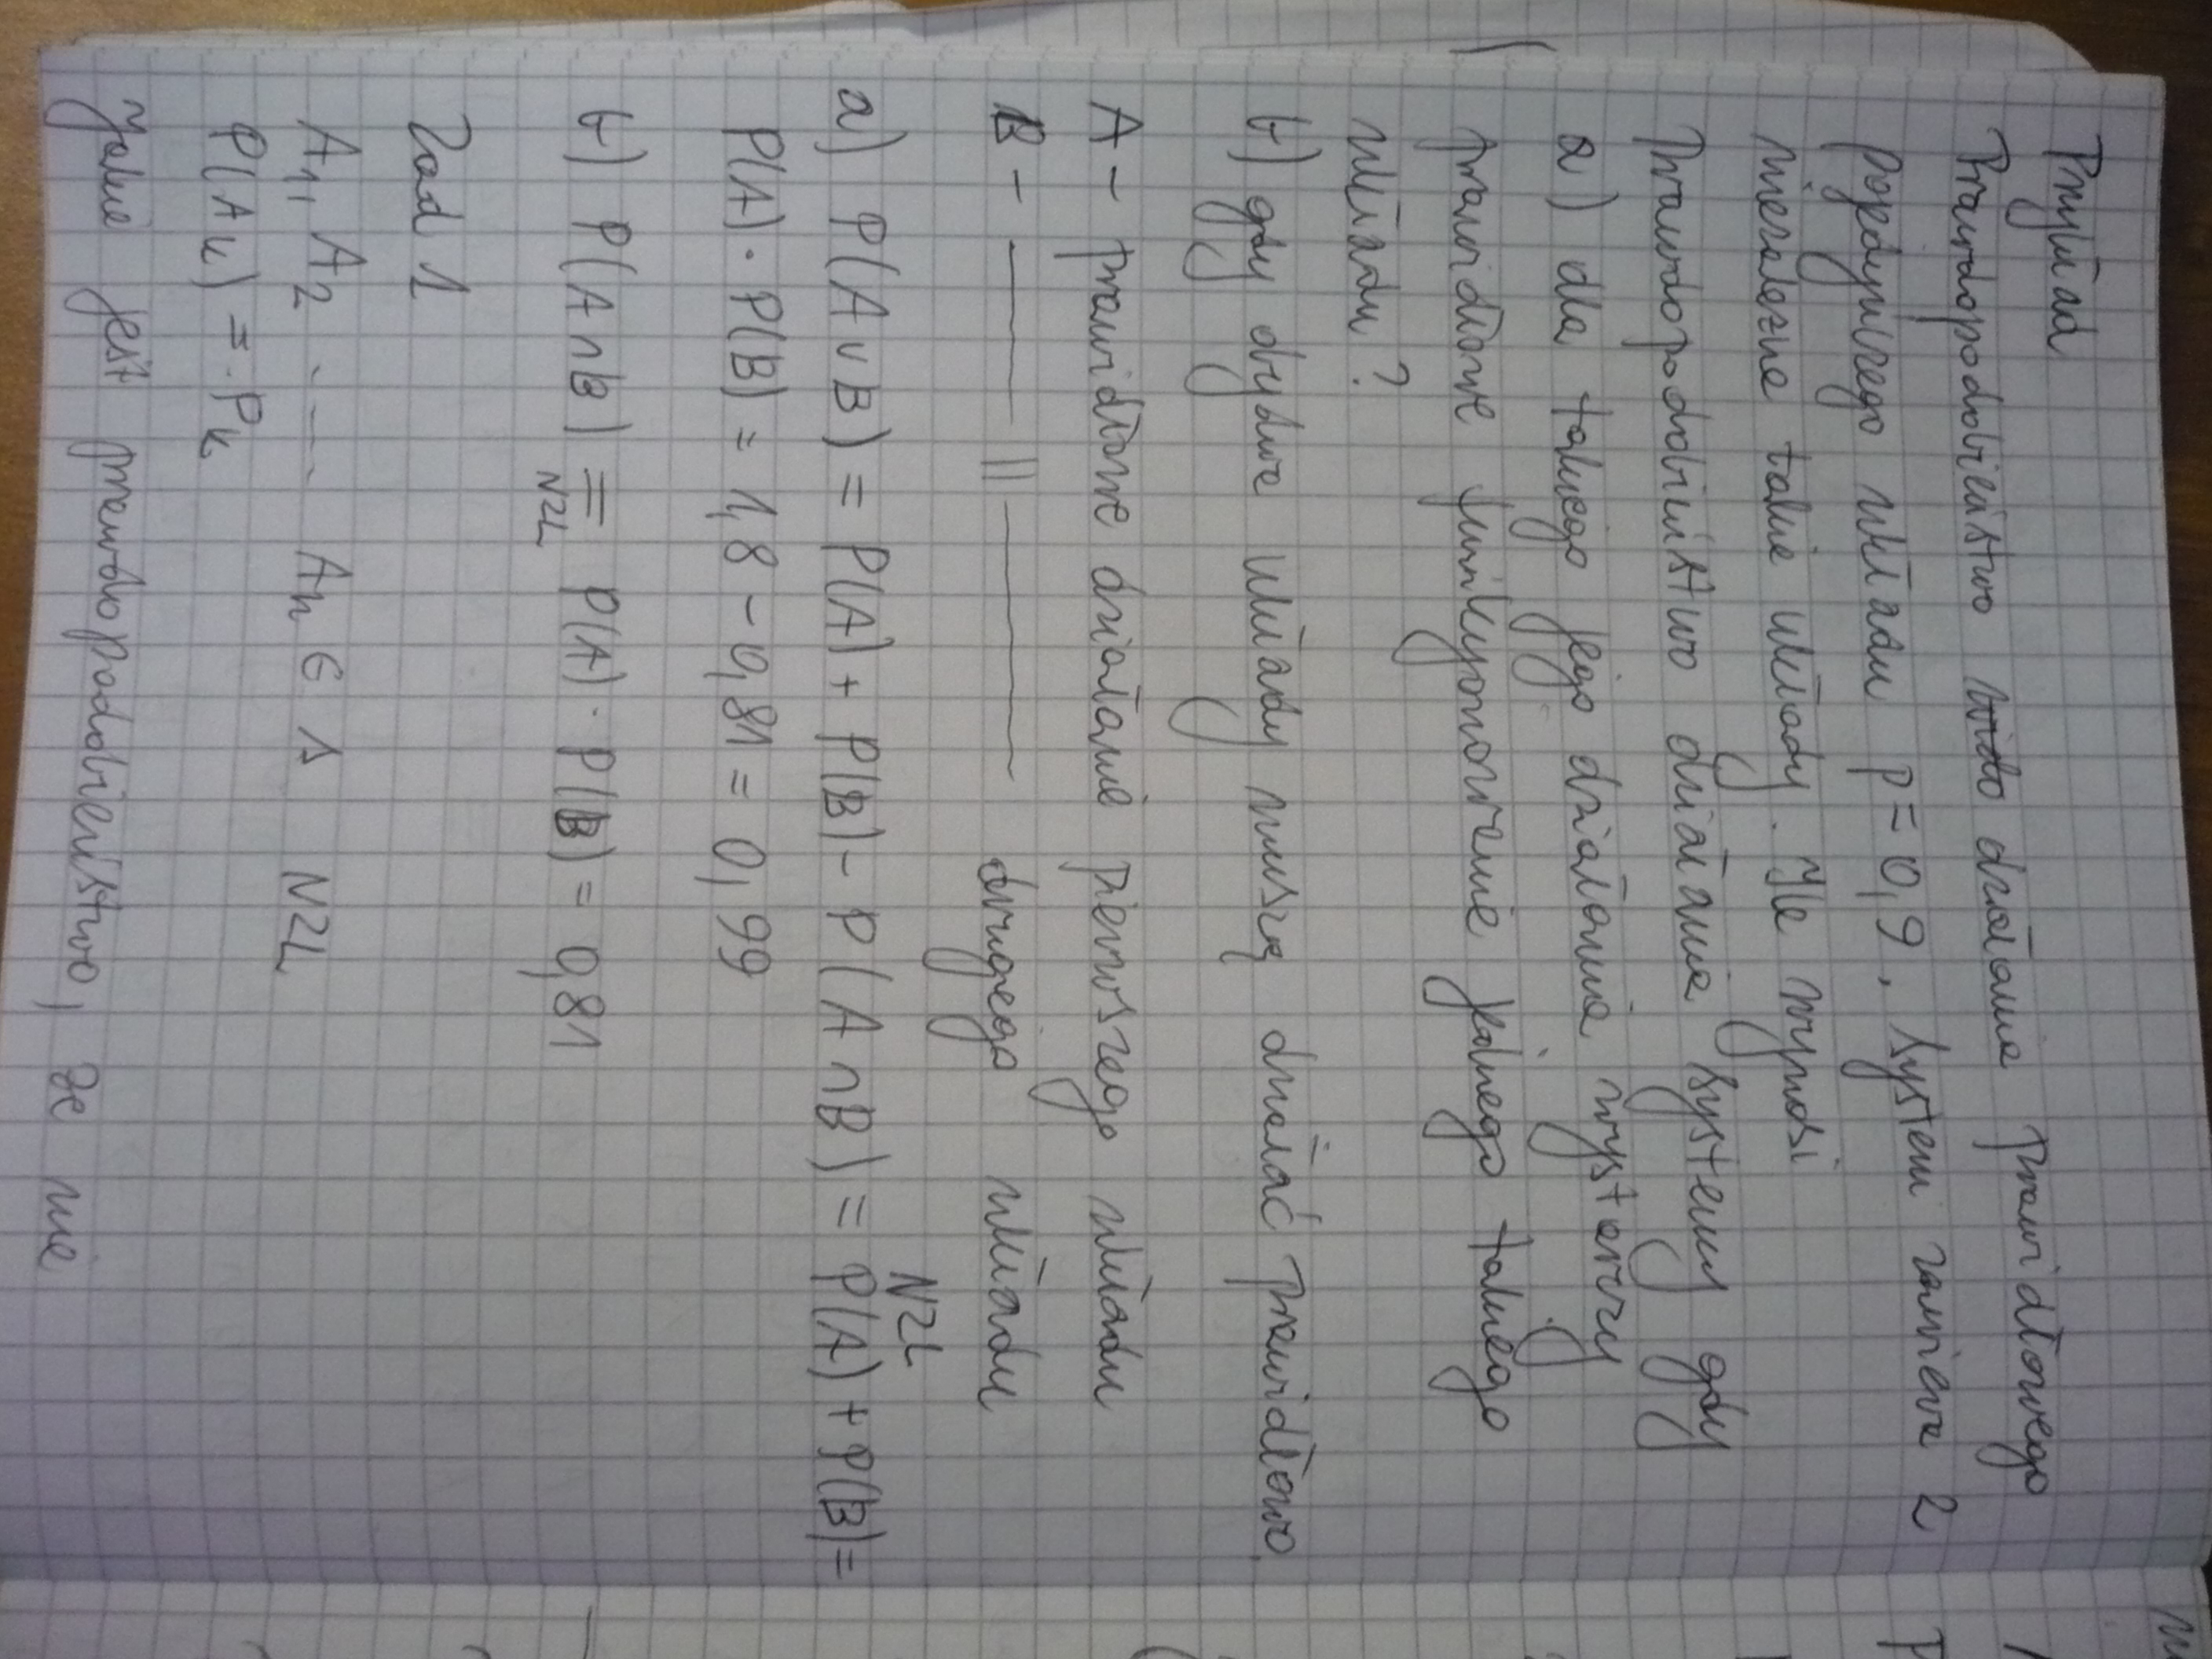 Przykład
Prawdopodobieństwo działania prawidłowego
pojedynczego układu p = 0,9. System zawiera 2
niezależne takie układy. Ile wynosi
prawdopodobieństwo działania systemu gdy
a) dla takiego jego działania wystarczy
prawidłowe funkcjonowanie jednego takiego
układu?
b) gdy obydwa układy muszą działać prawidłowo.
A - prawidłowe działanie pierwszego układu
B - —— || —— drugiego układu
a) P(A ∪ B) = P(A) + P(B) - P(A ∩ B) = NZL P(A) + P(B) =
P(A) · P(B) = 1,8 - 0,81 = 0,99
b) P(A ∩ B) = NZL P(A) · P(B) = 0,81
Zad 1
A1, A2 .... An ∈ S NZL
P(Ak) = Pk
Jakie jest prawdopodobieństwo, że nie